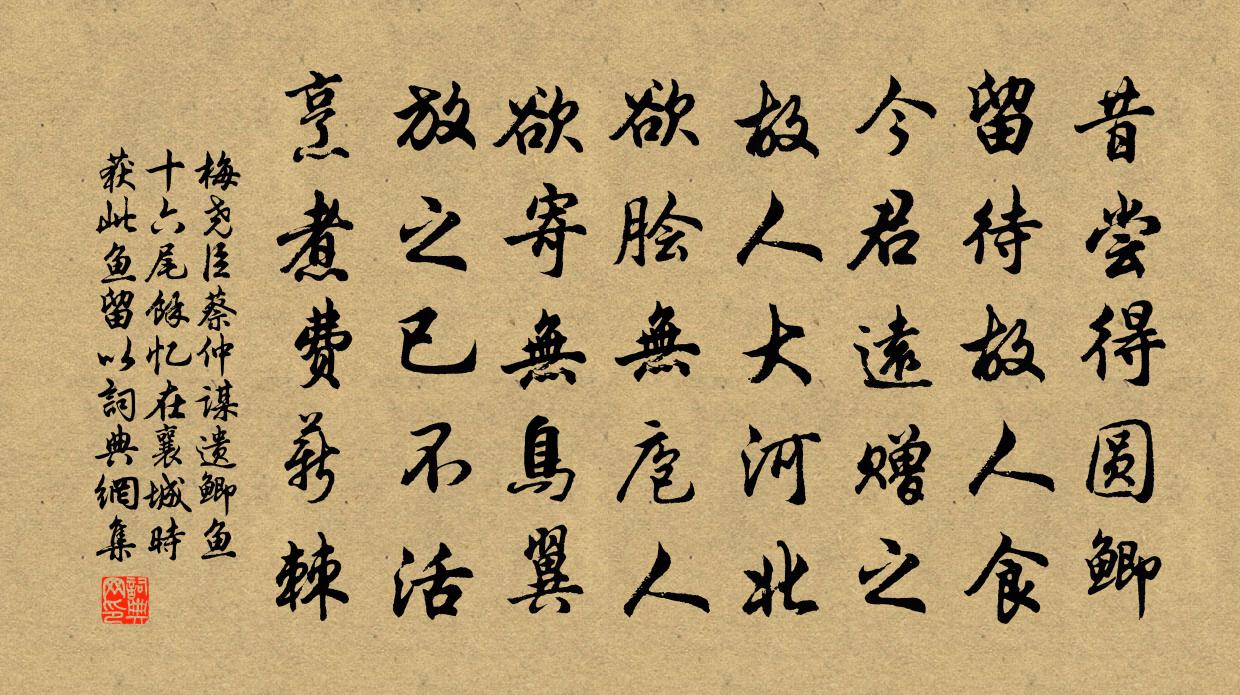 昔尝得圆鲫
留待故人食
今君遠赠之
故人大河北
欲脍無庖人
欲寄無鳥翼
放之已不活
烹煮費薪棘
梅尧臣蔡仲謀遗鲫鱼
十六尾餘忆在襄城時
获此鱼留以詞典網集
詞典网印